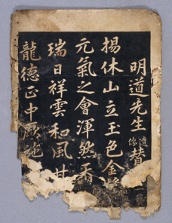 明道先生
贊
揚休山立玉色金
元氣之會渾然
瑞日祥雲和風甘
龍德正中厥